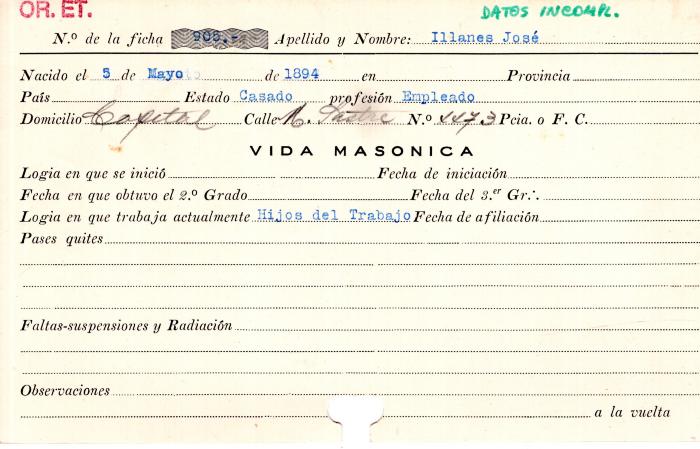 OR. ET.
DATOS INCOMPL.
N.º de la ficha 908.- Apellido y Nombre: Illanes José
Nacido el 5 de Mayo de 1894 en Provincia
País Estado Casado profesión Empleado
Domicilio Capital Calle N.º 4473 Pcia. o F. C.
VIDA MASONICA
Logia en que se inició Fecha de iniciación
Fecha en que obtuvo el 2.º Grado Fecha del 3.er Gr∴
Logia en que trabaja actualmente Hijos del Trabajo Fecha de afiliación
Pases quites
Faltas-suspensiones y Radiación
Observaciones
a la vuelta